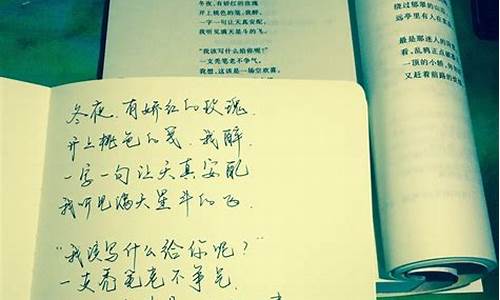 冬夜，有娇红的玫瑰
开上桃色的笺，我醉，
一字一句让天真安配，
我听见满天星斗的飞。
“我该写什么给你呢？”
一支秃笔老不争气。
我想，这该是一场空欢喜，
绕过郁翠的山
远亭里有人在
最是那迷人的
看，乱鸦正点破
一顶的小轿，
又赶着前路的
冬夜，有娇红的玫瑰，
开上桃色的笺，我醉，
一字一句让天真安配
我听见满天星斗的飞
“我该写什么给你呢？”
一支秃笔老不争气.